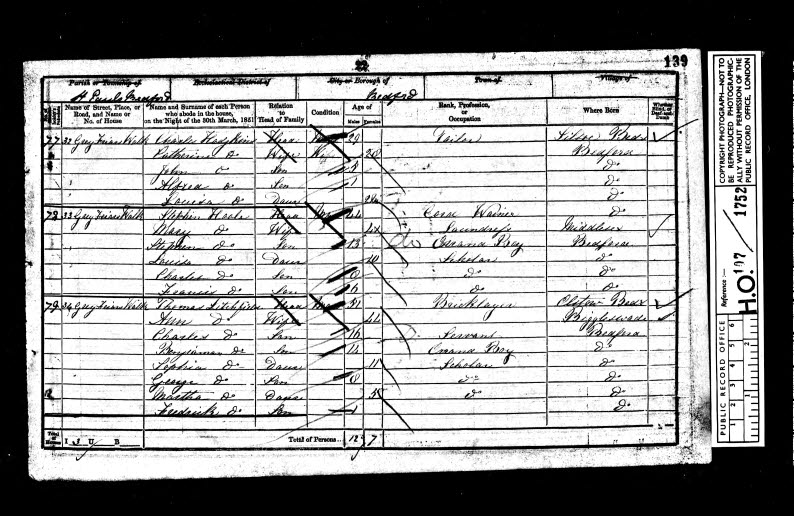 22
139
Parish or Township of
Ecclesiastical District of
City or Borough of
Town of
Village of
St Pauls Bedford
Bedford
Name of Street, Place, or Road, and Name or No. of House
Name and Surname of each Person who abode in the house, on the Night of the 30th March, 1851
Relation to Head of Family
Condition
Age of
Males
Females
Rank, Profession, or Occupation
Where Born
Whether Blind, or Deaf-and-Dumb
77 Grey Friars Walk Charles Hodgkins Head 29 Tailor Beds
Catherine Do Wife 28 Bedford
John Do Son Do
Alfred Do Son 1 Do
Louisa Do Daur Do
78 33 Grey Friars Walk Stephen Head 44 Do
Mary Do Wife Laundress Middlesex
Stephen Do Son 13 Errand Boy Bedford
Louisa Do Daur 10 Scholar Do
Charles Do Son 8 Do Do
Francis Do Son 6 Do Do
79 34 Grey Friars Walk Thomas Litchfield Head 51 Bricklayer Elstow Beds
Ann Do Wife 44 Biggleswade
Charles Do Son 16 Servant Bedford
Benjamin Do Son 14 Errand Boy Do
Sophia Do Daur 11 Scholar Do
George Do Son 8 Do Do
Martha Do Daur 5 Do Do
Fredrick Do Son 1 Do
Total of Houses
I U B
Total of Persons 12 7
COPYRIGHT PHOTOGRAPH—NOT TO BE REPRODUCED PHOTOGRAPHICALLY WITHOUT PERMISSION OF THE PUBLIC RECORD OFFICE, LONDON
Reference :—
H.O. 107 / 1752
PUBLIC RECORD OFFICE
1 2 3 4 5 6
1 2